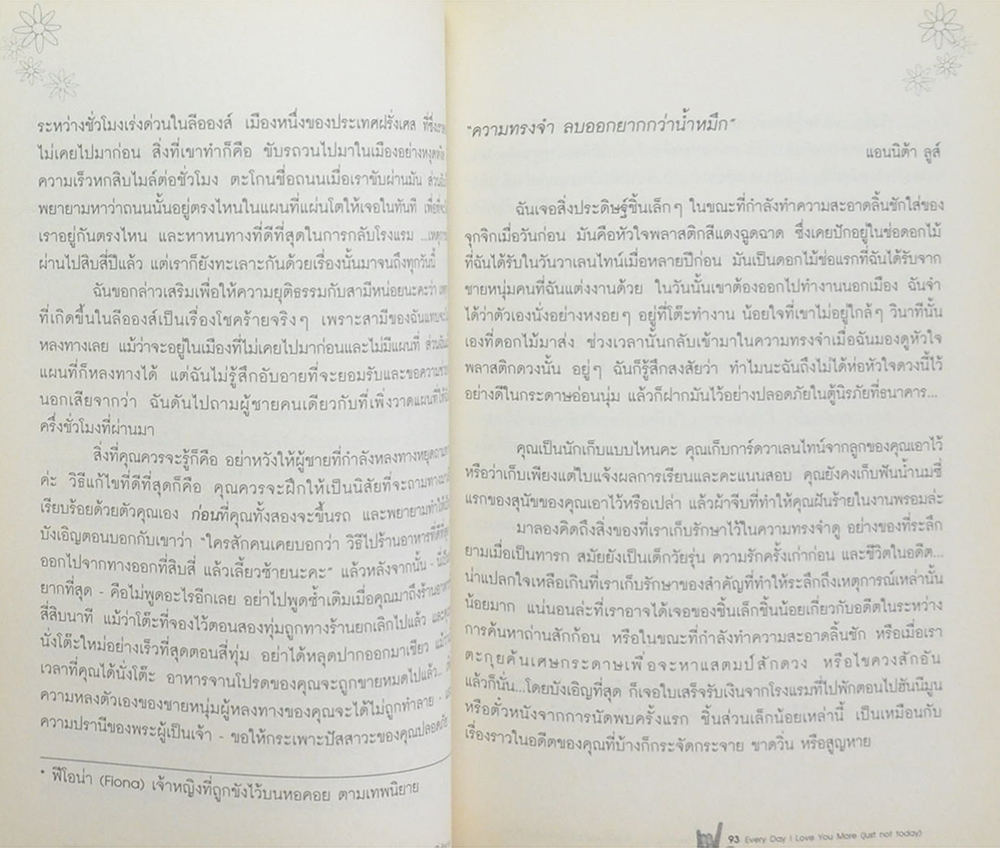 ระหว่างชั่วโมงเร่งด่วนในลีอองส์ เมืองหนึ่งของประเทศฝรั่งเศส
ไม่เคยไปมาก่อน สิ่งที่เขาทำก็คือ ขับรถวนไปมาในเมืองอย่าง
ความเร็วหกสิบไมล์ต่อชั่วโมง ตะโกนชื่อถนนเมื่อเราขับผ่านมัน
พยายามหาว่าถนนนั้นอยู่ตรงไหนในแผนที่แผ่นโตให้เจอในทันที
เราอยู่กันตรงไหน และหาหนทางที่ดีที่สุดในการกลับโรงแรม
ผ่านไปสิบสี่ปีแล้ว แต่เราก็ยังทะเลาะกันด้วยเรื่องนั้นมาจนถึงทุกวันนี้
ฉันขอกล่าวเสริมเพื่อให้ความยุติธรรมกับสามีหน่อยนะคะว่า
ที่เกิดขึ้นในลีอองส์เป็นเรื่องโชคร้ายจริงๆ เพราะสามีของฉันแทบจะ
หลงทางเลย แม้ว่าจะอยู่ในเมืองที่ไม่เคยไปมาก่อนและไม่มีแผนที่
แผนที่ก็หลงทางได้ แต่ฉันไม่รู้สึกอับอายที่จะยอมรับและขอความ
นอกเสียจากว่า ฉันดันไปถามผู้ชายคนเดียวกับที่เพิ่งวาดแผนที่ให้
ครึ่งชั่วโมงที่ผ่านมา
สิ่งที่คุณควรจะรู้ก็คือ อย่าหวังให้ผู้ชายที่กำลังหลงทางหยุด
ค่ะ วิธีแก้ไขที่ดีที่สุดก็คือ คุณควรจะฝึกให้เป็นนิสัยที่จะถามทาง
เรียบร้อยด้วยตัวคุณเอง ก่อนที่คุณทั้งสองจะขึ้นรถ และพยายามทำให้
บังเอิญตอนบอกกับเขาว่า "ใครสักคนเคยบอกว่า วิธีไปร้านอาหารที่ดีที่สุด
ออกไปจากทางออกที่สิบสี่ แล้วเลี้ยวซ้ายนะคะ" แล้วหลังจากนั้น -
ยากที่สุด - คือไม่พูดอะไรอีกเลย อย่าไปพูดซ้ำเติมเมื่อคุณมาถึงร้าน
สี่สิบนาที แม้ว่าโต๊ะที่จองไว้ตอนสองทุ่มถูกทางร้านยกเลิกไปแล้ว
นั่งโต๊ะใหม่อย่างเร็วที่สุดตอนสี่ทุ่ม อย่าได้หลุดปากออกมาเชียว
เวลาที่คุณได้นั่งโต๊ะ อาหารจานโปรดของคุณจะถูกขายหมดไปแล้ว...
ความหลงตัวเองของชายหนุ่มผู้หลงทางของคุณจะได้ไม่ถูกทำลาย -
ความปรานีของพระผู้เป็นเจ้า - ขอให้กระเพาะปัสสาวะของคุณปลอดภัย
* ฟิโอน่า (Fiona) เจ้าหญิงที่ถูกขังไว้บนหอคอย ตามเทพนิยาย
"ความทรงจำ ลบออกยากกว่าน้ำหมึก"
แอนนิต้า ลูส์
ฉันเจอสิ่งประดิษฐ์ชิ้นเล็กๆ ในขณะที่กำลังทำความสะอาดลิ้นชักใส่ของ
จุกจิกเมื่อวันก่อน มันคือหัวใจพลาสติกสีแดงฉูดฉาด ซึ่งเคยปักอยู่ในช่อดอกไม้
ที่ฉันได้รับในวันวาเลนไทน์เมื่อหลายปีก่อน มันเป็นดอกไม้ช่อแรกที่ฉันได้รับจาก
ชายหนุ่มคนที่ฉันแต่งงานด้วย ในวันนั้นเขาต้องออกไปทำงานนอกเมือง ฉันจำ
ได้ว่าตัวเองนั่งอย่างหงอยๆ อยู่ที่โต๊ะทำงาน น้อยใจที่เขาไม่อยู่ใกล้ๆ วินาทีนั้น
เองที่ดอกไม้มาส่ง ช่วงเวลานั้นกลับเข้ามาในความทรงจำเมื่อฉันมองดูหัวใจ
พลาสติกดวงนั้น อยู่ๆ ฉันก็รู้สึกสงสัยว่า ทำไมนะฉันถึงไม่ได้ห่อหัวใจดวงนี้ไว้
อย่างดีในกระดาษอ่อนนุ่ม แล้วก็ฝากมันไว้อย่างปลอดภัยในตู้นิรภัยที่ธนาคาร...
คุณเป็นนักเก็บแบบไหนคะ คุณเก็บการ์ดวาเลนไทน์จากลูกของคุณเอาไว้
หรือว่าเก็บเพียงแต่ใบแจ้งผลการเรียนและคะแนนสอบ คุณยังคงเก็บฟันน้ำนมซี่
แรกของสุนัขของคุณเอาไว้หรือเปล่า แล้วผ้าจีบที่ทำให้คุณฝันร้ายในงานพรอมล่ะ
มาลองคิดถึงสิ่งของที่เราเก็บรักษาไว้ในความทรงจำดู อย่างของที่ระลึก
ยามเมื่อเป็นทารก สมัยยังเป็นเด็กวัยรุ่น ความรักครั้งเก่าก่อน และชีวิตในอดีต...
น่าแปลกใจเหลือเกินที่เราเก็บรักษาของสำคัญที่ทำให้ระลึกถึงเหตุการณ์เหล่านั้น
น้อยมาก แน่นอนล่ะที่เราอาจได้เจอของชิ้นเล็กชิ้นน้อยเกี่ยวกับอดีตในระหว่าง
การค้นหาถ่านสักก้อน หรือในขณะที่กำลังทำความสะอาดลิ้นชัก หรือเมื่อเรา
ตะกุยค้นเศษกระดาษเพื่อจะหาแสตมป์สักดวง หรือไขควงสักอัน
แล้วก็นั่น...โดยบังเอิญที่สุด ก็เจอใบเสร็จรับเงินจากโรงแรมที่ไปพักตอนไปฮันนีมูน
หรือตั๋วหนังจากการนัดพบครั้งแรก ชิ้นส่วนเล็กน้อยเหล่านี้ เป็นเหมือนกับ
เรื่องราวในอดีตของคุณที่บ้างก็กระจัดกระจาย ขาดวิ่น หรือสูญหาย
93 Every Day I Love You More (just not today)